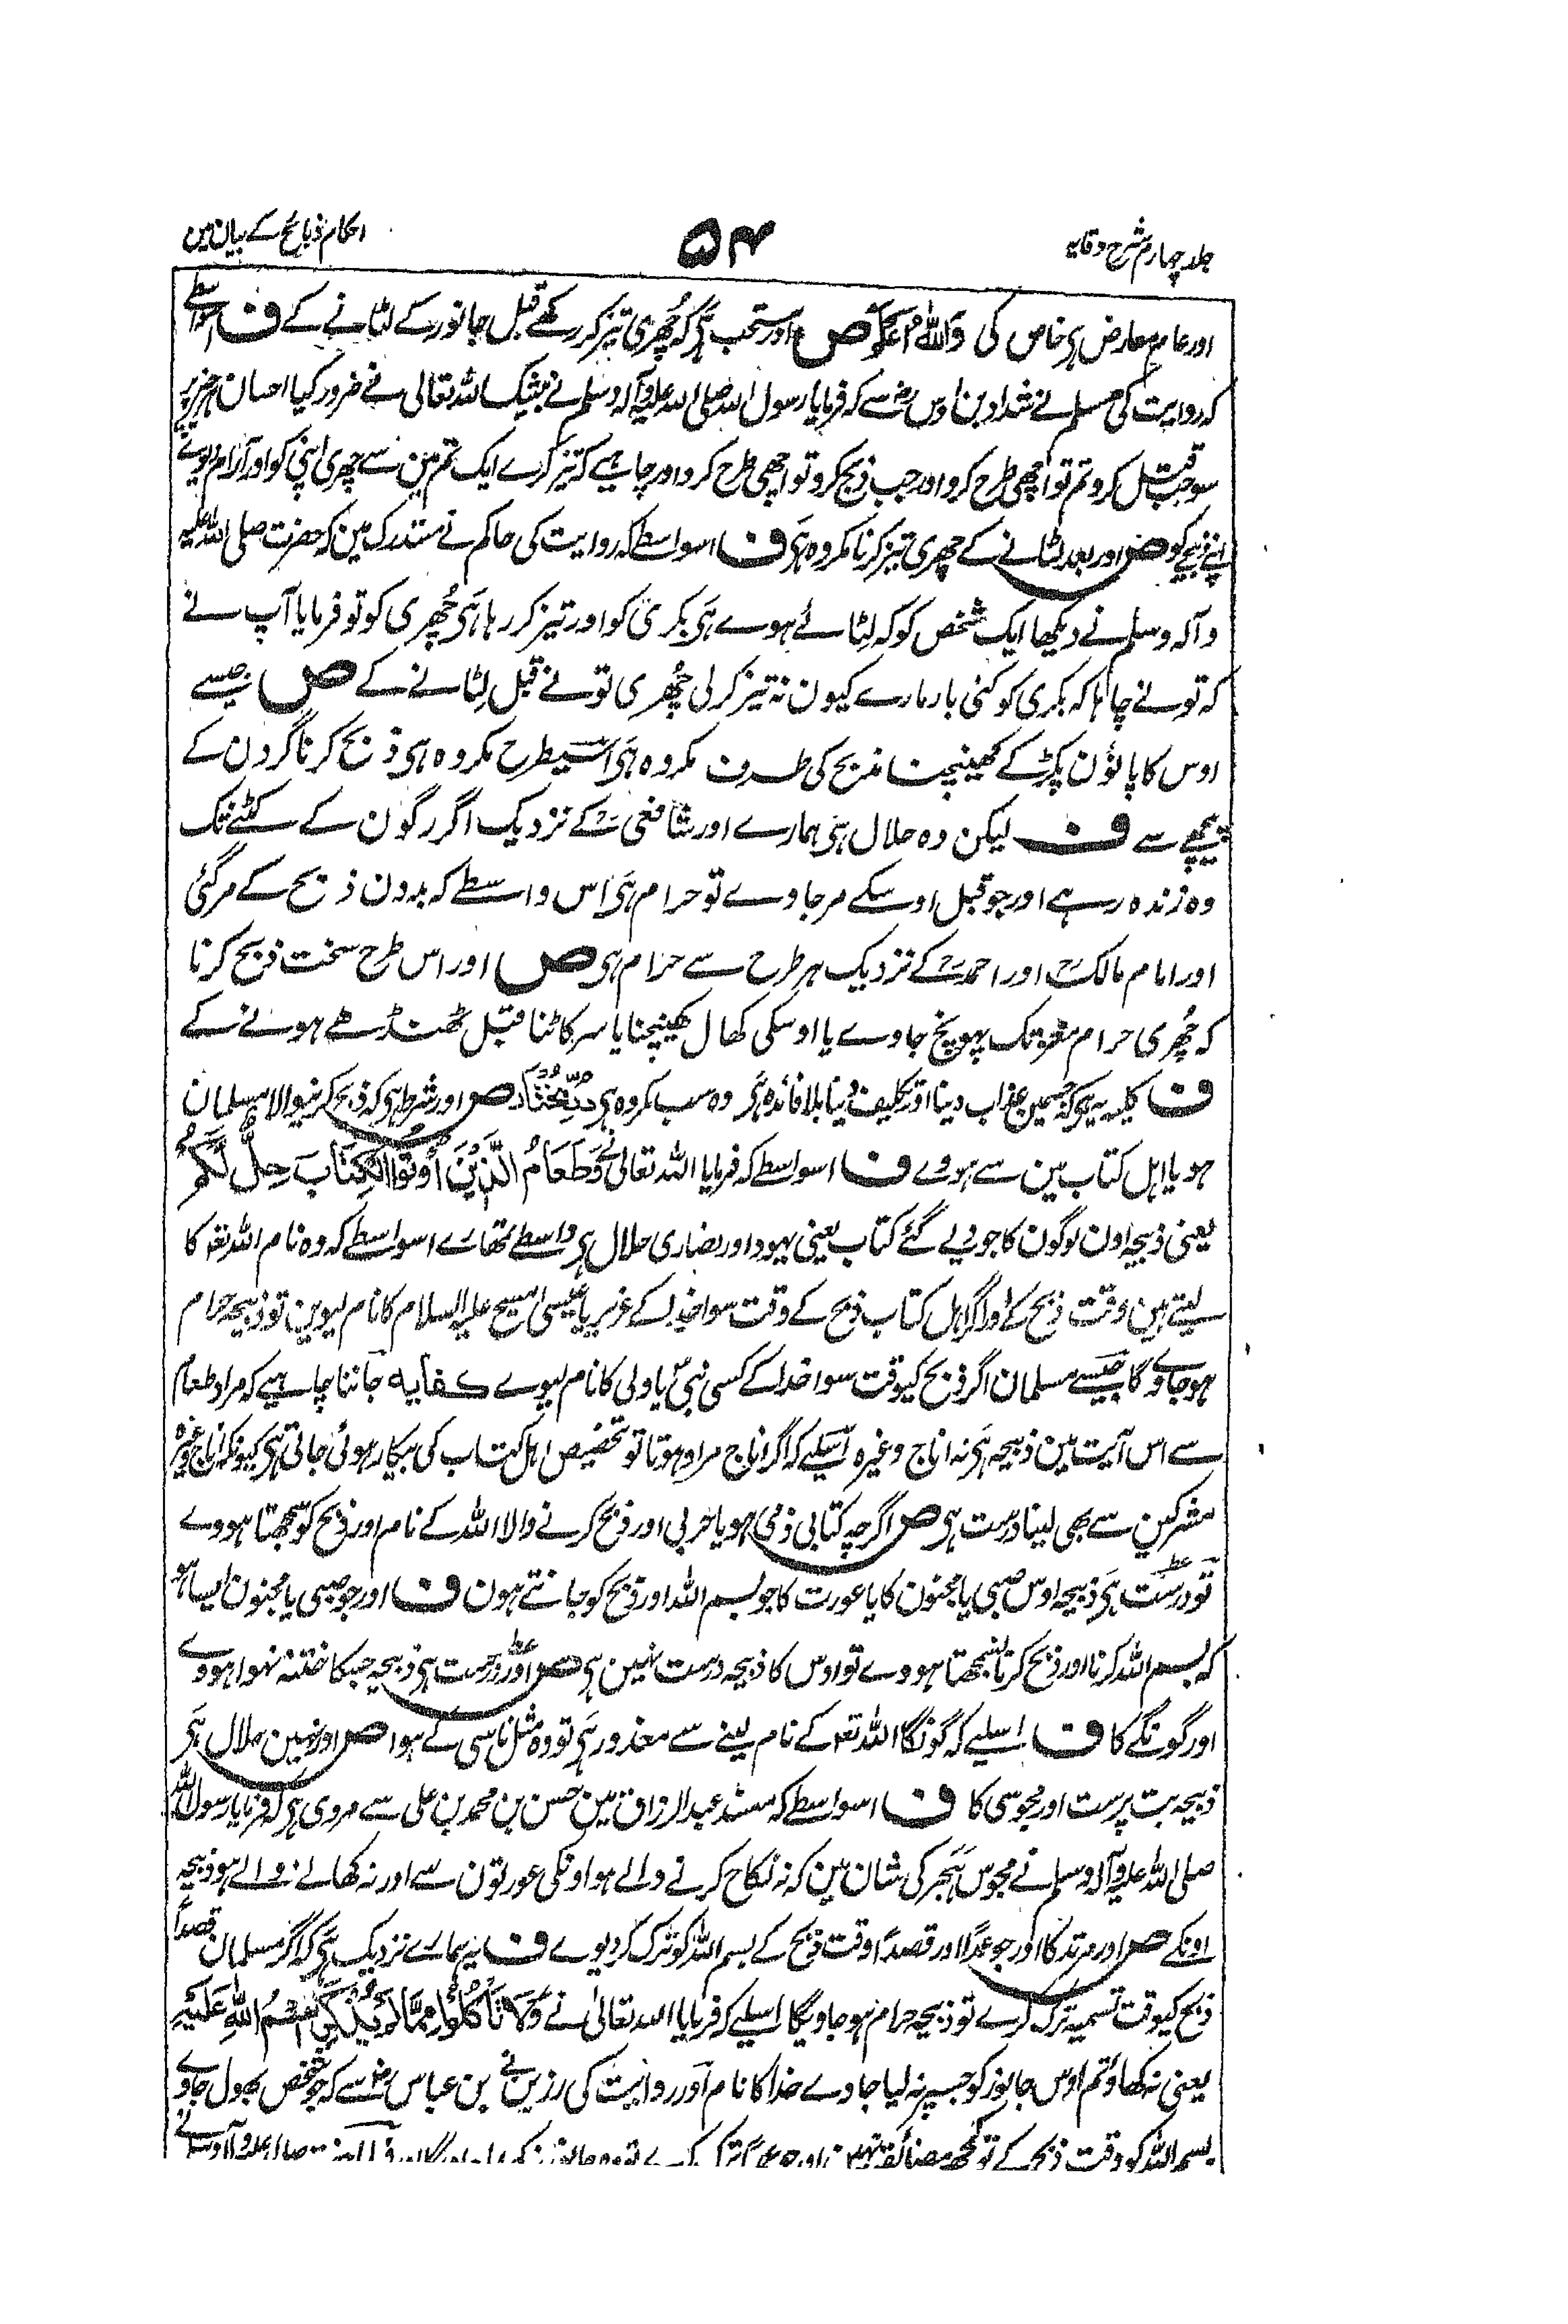 جلد چہارم شرح وقایہ
۵۴
احکام ذبائح کے بیان مین
اور عام معارض ہی خاص کی واللہ اعلم ص اور مستحب ہی کہ چھری تیز کر رکھے قبل جانور کے لٹانے کے ف اسواسطے
کہ روایت کی مسلم نے شداد بن اوس رض سے کہ فرمایا رسول اللہ صلی اللہ علیہ وآلہ وسلم نے بیشک اللہ تعالی نے ضرور کیا احسان ہر چیز پر
سو جب قتل کرو تم تو اچھی طرح کرو اور جب ذبح کرو تو اچھی طرح کرو اور چاہیے کہ تیز کرے ایک تم مین سے چھری اپنی کو اور آرام دیوے
اپنے ذبیحے کو ص اور بعد لٹانے کے چھری تیز کرنا مکروہ ہی ف اسواسطے کہ روایت کی حاکم نے مستدرک مین کہ حضرت صلی اللہ علیہ
وآلہ وسلم نے دیکھا ایک شخص کو کہ لِٹائے ہوے ہی بکری کو اور تیز کر رہا ہی چُھری کو تو فرمایا آپ نے
کہ تو نے چاہا کہ بکری کو کئی بار مارے کیون نہ تیز کر لی چُھری تو نے قبل لِٹانے کے ص جیسے
اوس کا پانؤن پکڑکے کھینچنا مذبح کی طرف مکروہ ہی اسیطرح مکروہ ہی ذبح کرنا گردن کے
پیچھے سے ف لیکن وہ حلال ہی ہمارے اور شافعی رح کے نزدیک اگر رگون کے کٹنے تک
وہ زندہ رہے اور جو قبل اوسکے مر جاوے تو حرام ہی اس واسطے کہ بدون ذبح کے مر گئی
اور امام مالک رح اور احمد رح کے نزدیک ہر طرح سے حرام ہی ص اور اس طرح سخت ذبح کرنا
کہ چُھری حرام مغز تک پہونچ جاوے یا اوسکی کھال کھینچنا یا سر کاٹنا قبل ٹھنڈھے ہونے کے
ف کلیہ یہ ہی کہ جسمین عذاب دینا اور تکلیف دینا بلا فائدہ ہی وہ سب مکروہ ہی ص اور شرط ہی کہ ذبح کرنیوالا مسلمان
ہو یا اہل کتاب مین سے ہووے ف اسواسطے کہ فرمایا اللہ تعالی نے وَطَعَامُ الَّذِيْنَ اُوْتُوا الْكِتَابَ حِلٌّ لَّكُمْ
یعنی ذبیحہ اون لوگون کا جو دیے گئے کتاب یعنی یہود اور نصاری حلال ہی واسطے تمھارے اسواسطے کہ وہ نام اللہ تعہ کا
لیتے ہین وقت ذبح کے اور اگر اہل کتاب ذبح کے وقت سوا خدا کے عزیر یا عیسی مسیح علیہ السلام کا نام لیوین تو ذبیحہ حرام
ہو جاوے گا جیسے مسلمان اگر ذبح کیوقت سوا خدا کے کسی نبی یا ولی کا نام لیوے کفایہ جاننا چاہیے کہ مراد طعام
سے اس آیت مین ذبیحہ ہی نہ اناج وغیرہ اسلیے کہ اگر اناج مراد ہوتا تو تخصیص اہل کتاب کی بیکار ہوئی جاتی ہی کیونکہ اناج وغیرہ
مشرکین سے بھی لینا درست ہی ص اگرچہ کتابی ذمی ہو یا حربی اور ذبح کرنے والا اللہ کے نام اور ذبح کو سمجھتا ہووے
تو درست ہی ذبیحہ اوس صبی یا مجنون کا یا عورت کا جو بسم اللہ اور ذبح کو جانتے ہون ف اور جو صبی یا مجنون ایسا ہو
کہ بسم اللہ کرنا اور ذبح کرنا نسمجھتا ہووے تو اوس کا ذبیحہ درست نہین ہی ص اور درست ہی ذبیحہ جسکا ختنہ نہوا ہووے
اور گونگے کا ف اسلیے کہ گونگا اللہ تعہ کے نام لینے سے معذور ہی تو وہ مثل ناسی کے ہوا ص اور نہین حلال ہی
ذبیحہ بت پرست اور مجوسی کا ف اسواسطے کہ مسند عبد الرزاق مین حسن بن محمد بن علی سے مروی ہی کہ فرمایا رسول اللہ
صلی اللہ علیہ وآلہ وسلم نے مجوس ہجر کی شان مین کہ نہ نکاح کرنے والے ہو اونکی عورتون سے اور نہ کھانے والے ہو ذبیحہ
اونکے ص اور مرتد کا اور جو عمدًا اور قصدًا وقت ذبح کے بسم اللہ کو ترک کر دیوے ف یہ ہمارے نزدیک ہی کہ اگر مسلمان قصدًا
ذبح کیوقت تسمیہ ترک کرے تو ذبیحہ حرام ہو جاویگا اسلیے کہ فرمایا اللہ تعالی نے وَلَا تَأْكُلُوْا مِمَّا لَمْ يُذْكَرِ اسْمُ اللّٰهِ عَلَيْهِ
یعنی نہ کھاؤ تم اوس جانور کو جسپر نہ لیا جاوے خدا کا نام اور روایت کی رزین نے بن عباس رض سے کہ جو شخص بھول جاوے
بسم اللہ کو وقت ذبح کے تو کچھ مضائقہ نہین اور جو عمدًا ترک کرے تو وہ جانور